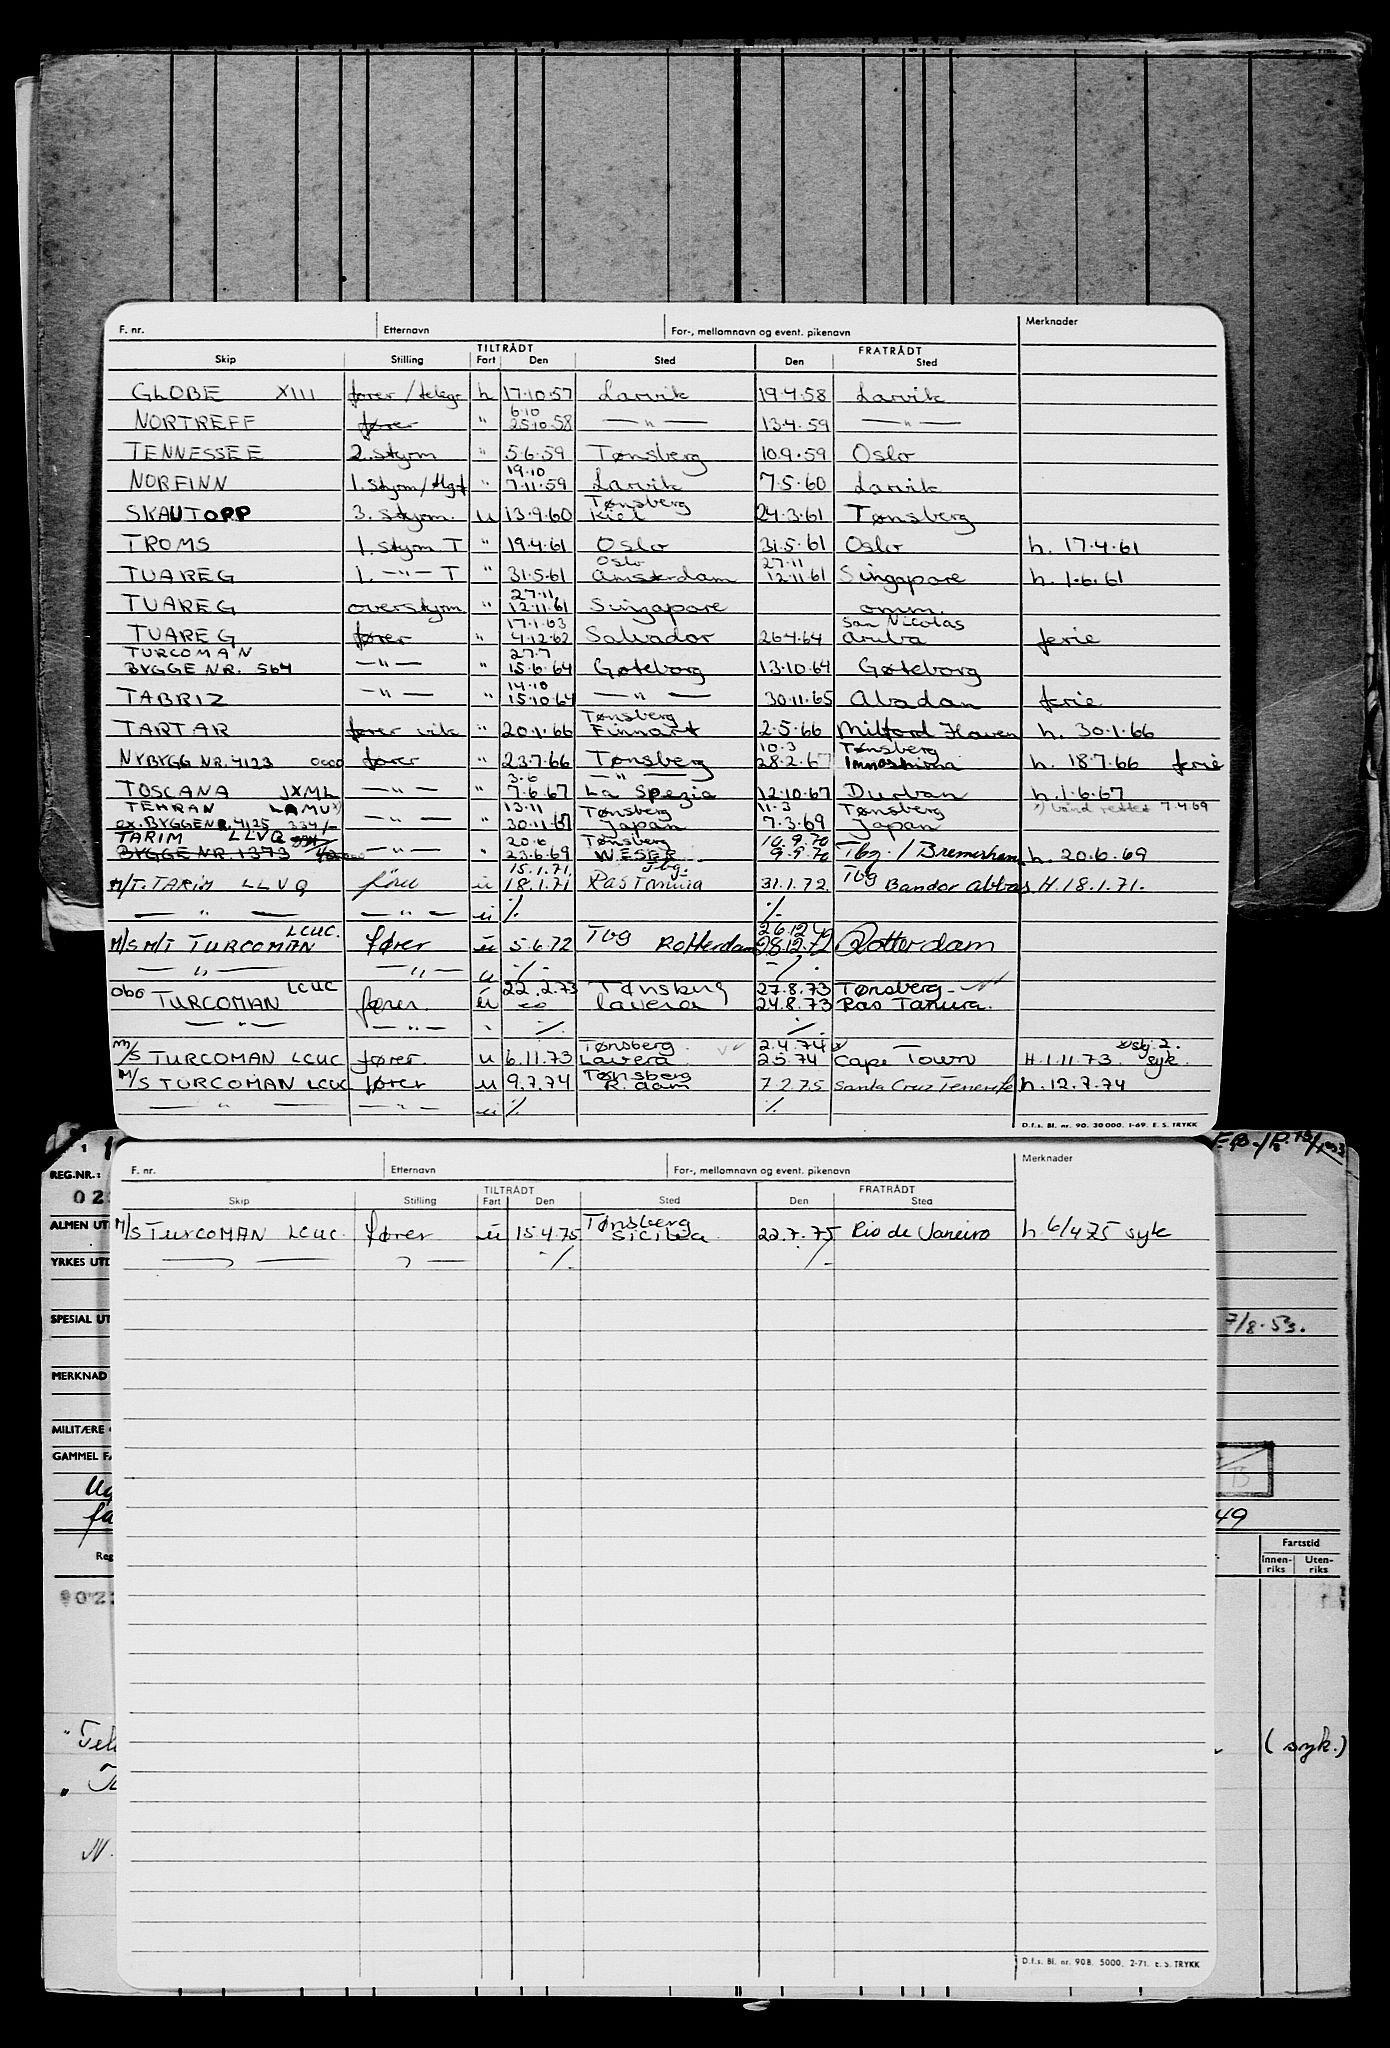 F. nr. Etternavn For-, mellomnavn og event. pikenavn Merknader
TILTRÅDT FRATRÅDT
Skip Stilling Fart Den Sted Den Sted
GLOBE XIII fører / telegr h 17.10.57 Larvik 19.4.58 Larvik
6.10
NORTREFF fører " 25.10.58 — " — 13.4.59 — " —
TENNESSEE 2. styrm " 5.6.59 Tønsberg 10.9.59 Oslo
19.10
NORFINN 1. styrm/ " 7.11.59 Larvik 7.5.60 Larvik
Tønsberg
SKAUTOPP 3. styrm. u 13.9.60 Kiel 24.3.61 Tønsberg
TROMS 1. styrm T " 19.4.61 Oslo 31.5.61 Oslo h. 17.4.61
Oslo 27.11
TUAREG 1. — " — T " 31.5.61 Amsterdam 12.11.61 Singapore h. 1.6.61
27.11
TUAREG overstyrm " 12.11.61 Singapore omm.
17.1.63 San Nicolas
TUAREG fører " 4.12.62 Salvador 26.4.64 Aruba ferie
TURCOMAN 27.7
BYGGE NR. 564 — " — " 15.6.64 Gøteborg 13.10.64 Gøteborg
14.10
TABRIZ — " — " 15.10.64 — " — 30.11.65 Abadan ferie
Tønsberg
TARTAR fører vik " 20.1.66 Finnart 2.5.66 Milford Haven h. 30.1.66
10.3 Tønsberg
NYBYGG NR. 4123 0000 fører " 23.7.66 Tønsberg 28.2.67 Innoshima h. 18.7.66 ferie
3.6 — " —
TOSCANA JXML — " — " 7.6.67 La Spezia 12.10.67 Durban h. 1.6.67
TEHRAN LAMU 13.11 Tønsberg 11.3 Tønsberg 7.4.69
ex. BYGGENR. 4125 334/- — " — " 30.11.67 Japan 7.3.69 Japan
TARIM LLVQ 20.6 Tønsberg 10.9.70
BYGGE NR. 1373 — " — " 23.6.69 WESER 9.9.70 Tbg. / Bremerhaven h. 20.6.69
15.1.71 Tbg. Tbg
M/T. TARIM LLVQ fører u 18.1.71 Ras Tanura 31.1.72 Bandar Abbas H. 18.1.71.
— " — — " — u ./. ./.
LCUC. 26.12.72
M/S M/T TURCOMAN fører u 5.6.72 Tbg Rotterdam 28.12.72 Rotterdam
— " — — " — u ./. ./.
LCUC 22.2.73 Tønsberg 27.8.73 Tønsberg
obo TURCOMAN fører. u Lavera 24.8.73 Ras Tanura.
— " — — " — ./. ./.
Tønsberg 2.4.74
M/S TURCOMAN LCUC fører. u 6.11.73 Lavera 2.5.74 Cape Town H. 1.11.73. syk.
Tønsberg
M/S TURCOMAN LCUC fører u 9.7.74 R. dam 7.2.75 Santa Cruz Tenerife h. 12.7.74
— " — — " — u ./. ./.
D.f.s. Bl. nr. 90. 30 000. 1-69. E. S. TRYKK
F. nr. Etternavn For-, mellomnavn og event. pikenavn Merknader
TILTRÅDT FRATRÅDT
Skip Stilling Fart Den Sted Den Sted
Tønsberg
M/S TURCOMAN LCUC. fører u 15.4.75 Sicilia 22.7.75 Rio de Janeiro h. 6/4 75 syk
./. ./.
D.f.s. Bl. nr. 90B. 5000. 2-71. E. S. TRYKK
REG.NR.:
02
ALMEN UT
YRKES UTD
SPESIAL UT
7/8.53.
MERKNAD
MILITÆRE
GAMMEL FA
49
Fartstid
Innen-riks Uten-riks
Reg
(syk.)